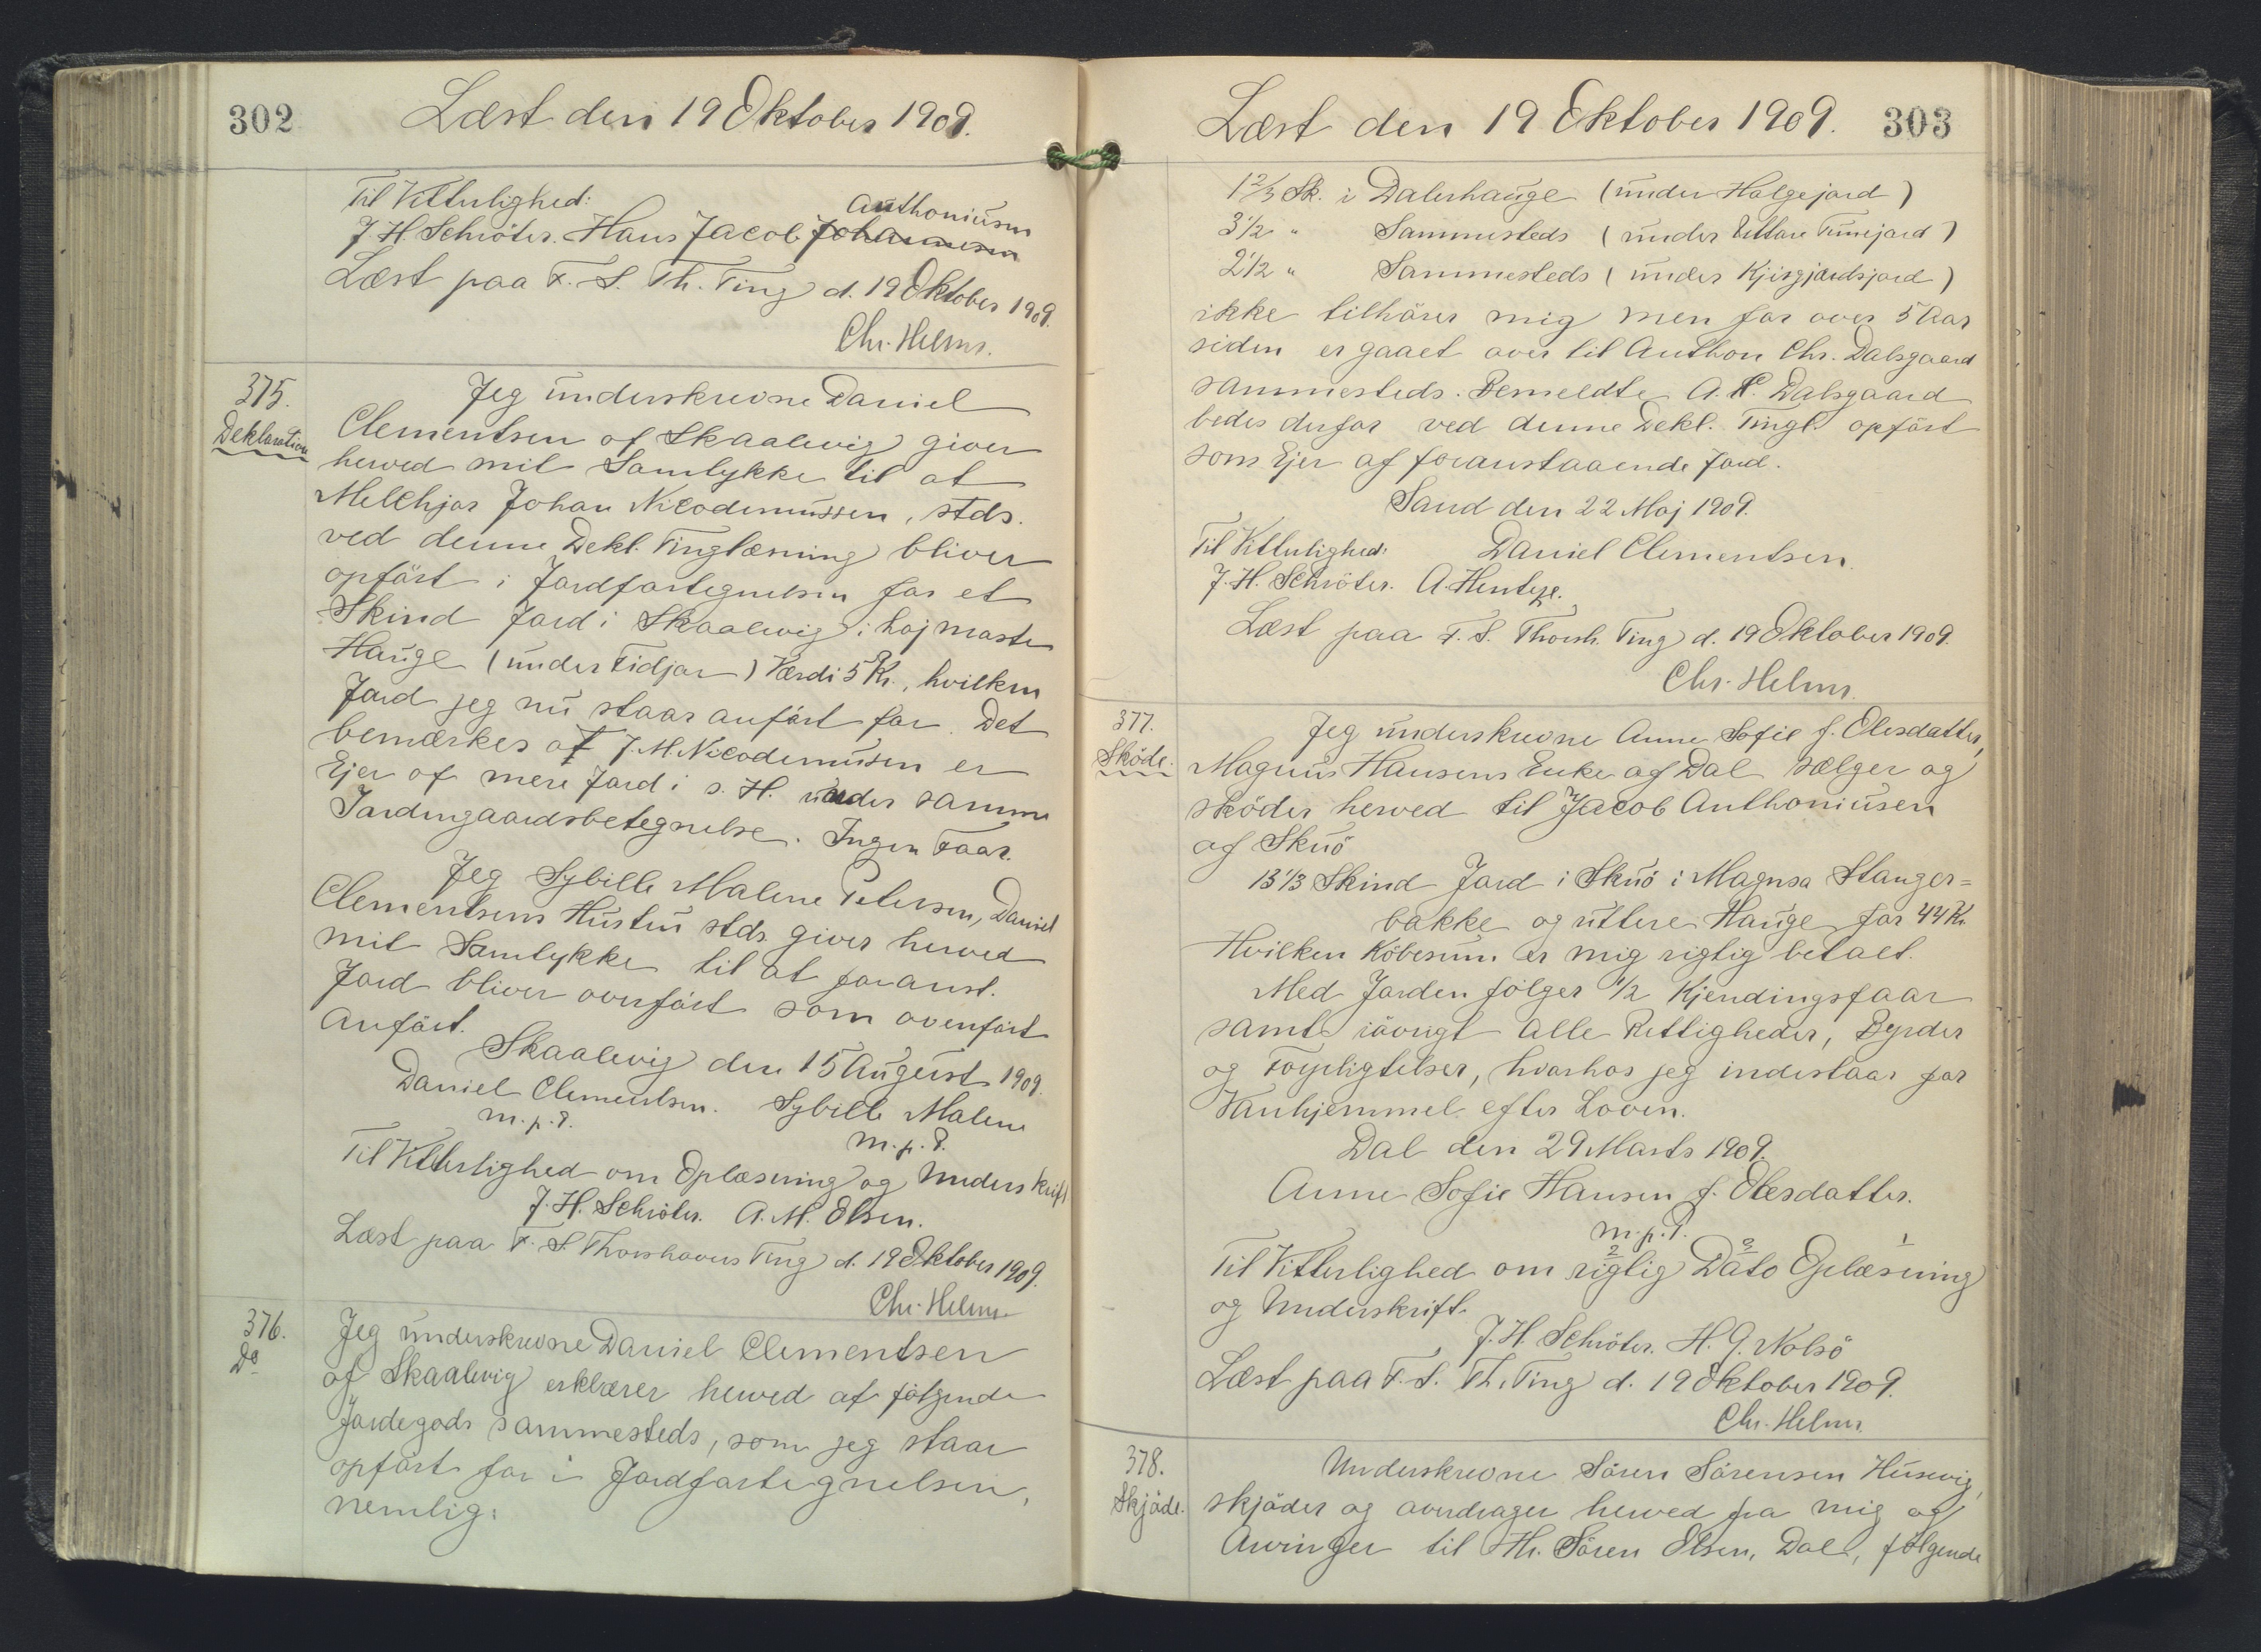 302
Læst den 19 Oktober 1909.
Til Vitterlighed:
Anthoniusen
J. H. Schröter. Hans Jacob Johannesen
Læst paa F. S. Th. Ting d. 19 Oktober 1909.
Chr. Helms.
375.
Deklaration
Jeg underskrevne Daniel
Clementsen af Skaalevig giver
herved mit Samtykke til at
Melchjor Johan Nicodemussen, stds.
ved denne Dekl. Tinglæsning bliver
opført i Jordfortegnelsen for et
Skind Jord i Skaalevig i hojmaste
Hauge (under Tidjar) Værdi 5 Kr., hvilken
Jord jeg nu staar anført for. Det
bemærkes at J. M. Nicodemusen er
Ejer af mere Jord i s. H. under samme
Jordingaardsbetegnelse. Ingen Faar.
Jeg Sybille Malene Petersen, Daniel
Clementsens Hustru stds. giver herved
mit Samtykke til at foranst.
Jord bliver overført som ovenført
Anført.
Skaalevig den 15 August 1909.
Daniel Clementsen. Sybille Malene
m. p. P.
m. p. P.
Til Vitterlighed om Oplæsning og Underskrift
J. H. Schröter. A. M. Olsen.
Læst paa F. S. Thorshavns Ting d. 19 Oktober 1909.
Chr. Helms.
376.
Do
Jeg underskrevne Daniel Clementsen
af Skaalevig erklærer herved at følgende
Jordegods sammesteds, som jeg staar
opført for i Jordfortegnelsen,
nemlig:
Læst den 19 Oktober 1909.
303
1 2/3 Sk. i Dalerhauge (under Holgejord)
3 1/2 " Sammesteds (under Uttare Tunejord)
2 1/2 " Sammesteds (under Kjirgjardsjord)
ikke tilhører mig men for over 5 Aar
siden er gaaet over til Anthon Chr. Dalsgaard
sammesteds. Bemeldte A. C. Dalsgaard
bedes derfor ved denne Dekl. Tingl. opført
som Ejer af foranstaaende Jord.
Sand den 22 Maj 1909.
Til Vitterlighed:
Daniel Clementsen.
J. H. Schröter. A. Hentze.
Læst paa F. S. Thorsh. Ting d. 19 Oktober 1909.
Chr. Helms.
377.
Sköde.
Jeg underskrevne Anne Sofie f. Olesdatter,
Magnus Hansens Enke af Dal sælger og
sköder herved til Jacob Anthoniusen
af Skuö
13 1/3 Skind Jord i Skuö i Magnsa Stanger=
bakke og uttere Hauge for 44 Kr.
Hvilken Köbesum er mig rigtig betalt.
Med Jorden fölger 1/2 Kjendingsfaar
samt iövrigt alle Rettigheder, Byrder
og Forpligtelser, hvorhos jeg indestaar for
Vanhjemmel efter Loven.
Dal den 29 Marts 1909.
Anne Sofie Hansen f. Olesdatter.
m. p. P.
2 3 1
Til Vitterlighed om rigtig Dato Oplæsning
og Underskrift.
J. H. Schröter. H. J. Nolsö
Læst paa F. S. Th. Ting d. 19 Oktober 1909.
Chr. Helms.
378.
Skjöde.
Underskrevne Sören Sörensen Husevig,
skjöder og overdrager herved fra mig og
Arvinger til Hr. Sören Olsen, Dal, fölgende